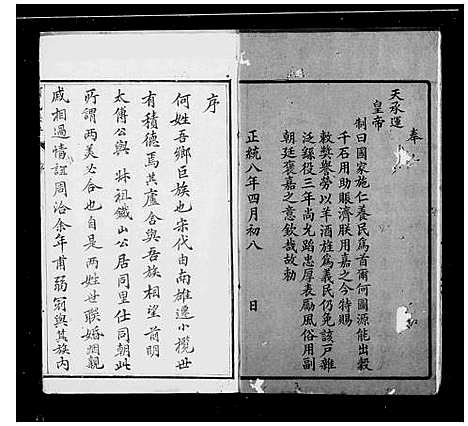 奉
天承運
皇帝
制曰國家施仁養民為首爾何圖源能出穀
千石用助賑濟朕用嘉之今特賜
敕獎譽勞以羊酒旌為義民仍免該戶雜
泛繇役三年尚允蹈忠厚表勵風俗用副
朝廷褒嘉之意欽哉故勅
正統八年四月初八 日
序
何姓吾鄉巨族也宋代由南雄遷小欖世
有積德焉其廬舍與吾族相望前明
太傅公與 姝祖鐵山公居同里仕同朝此
所謂兩美必合也自是兩姓世聯婚姻親
戚相過情誼周洽余年甫弱冠與其族內